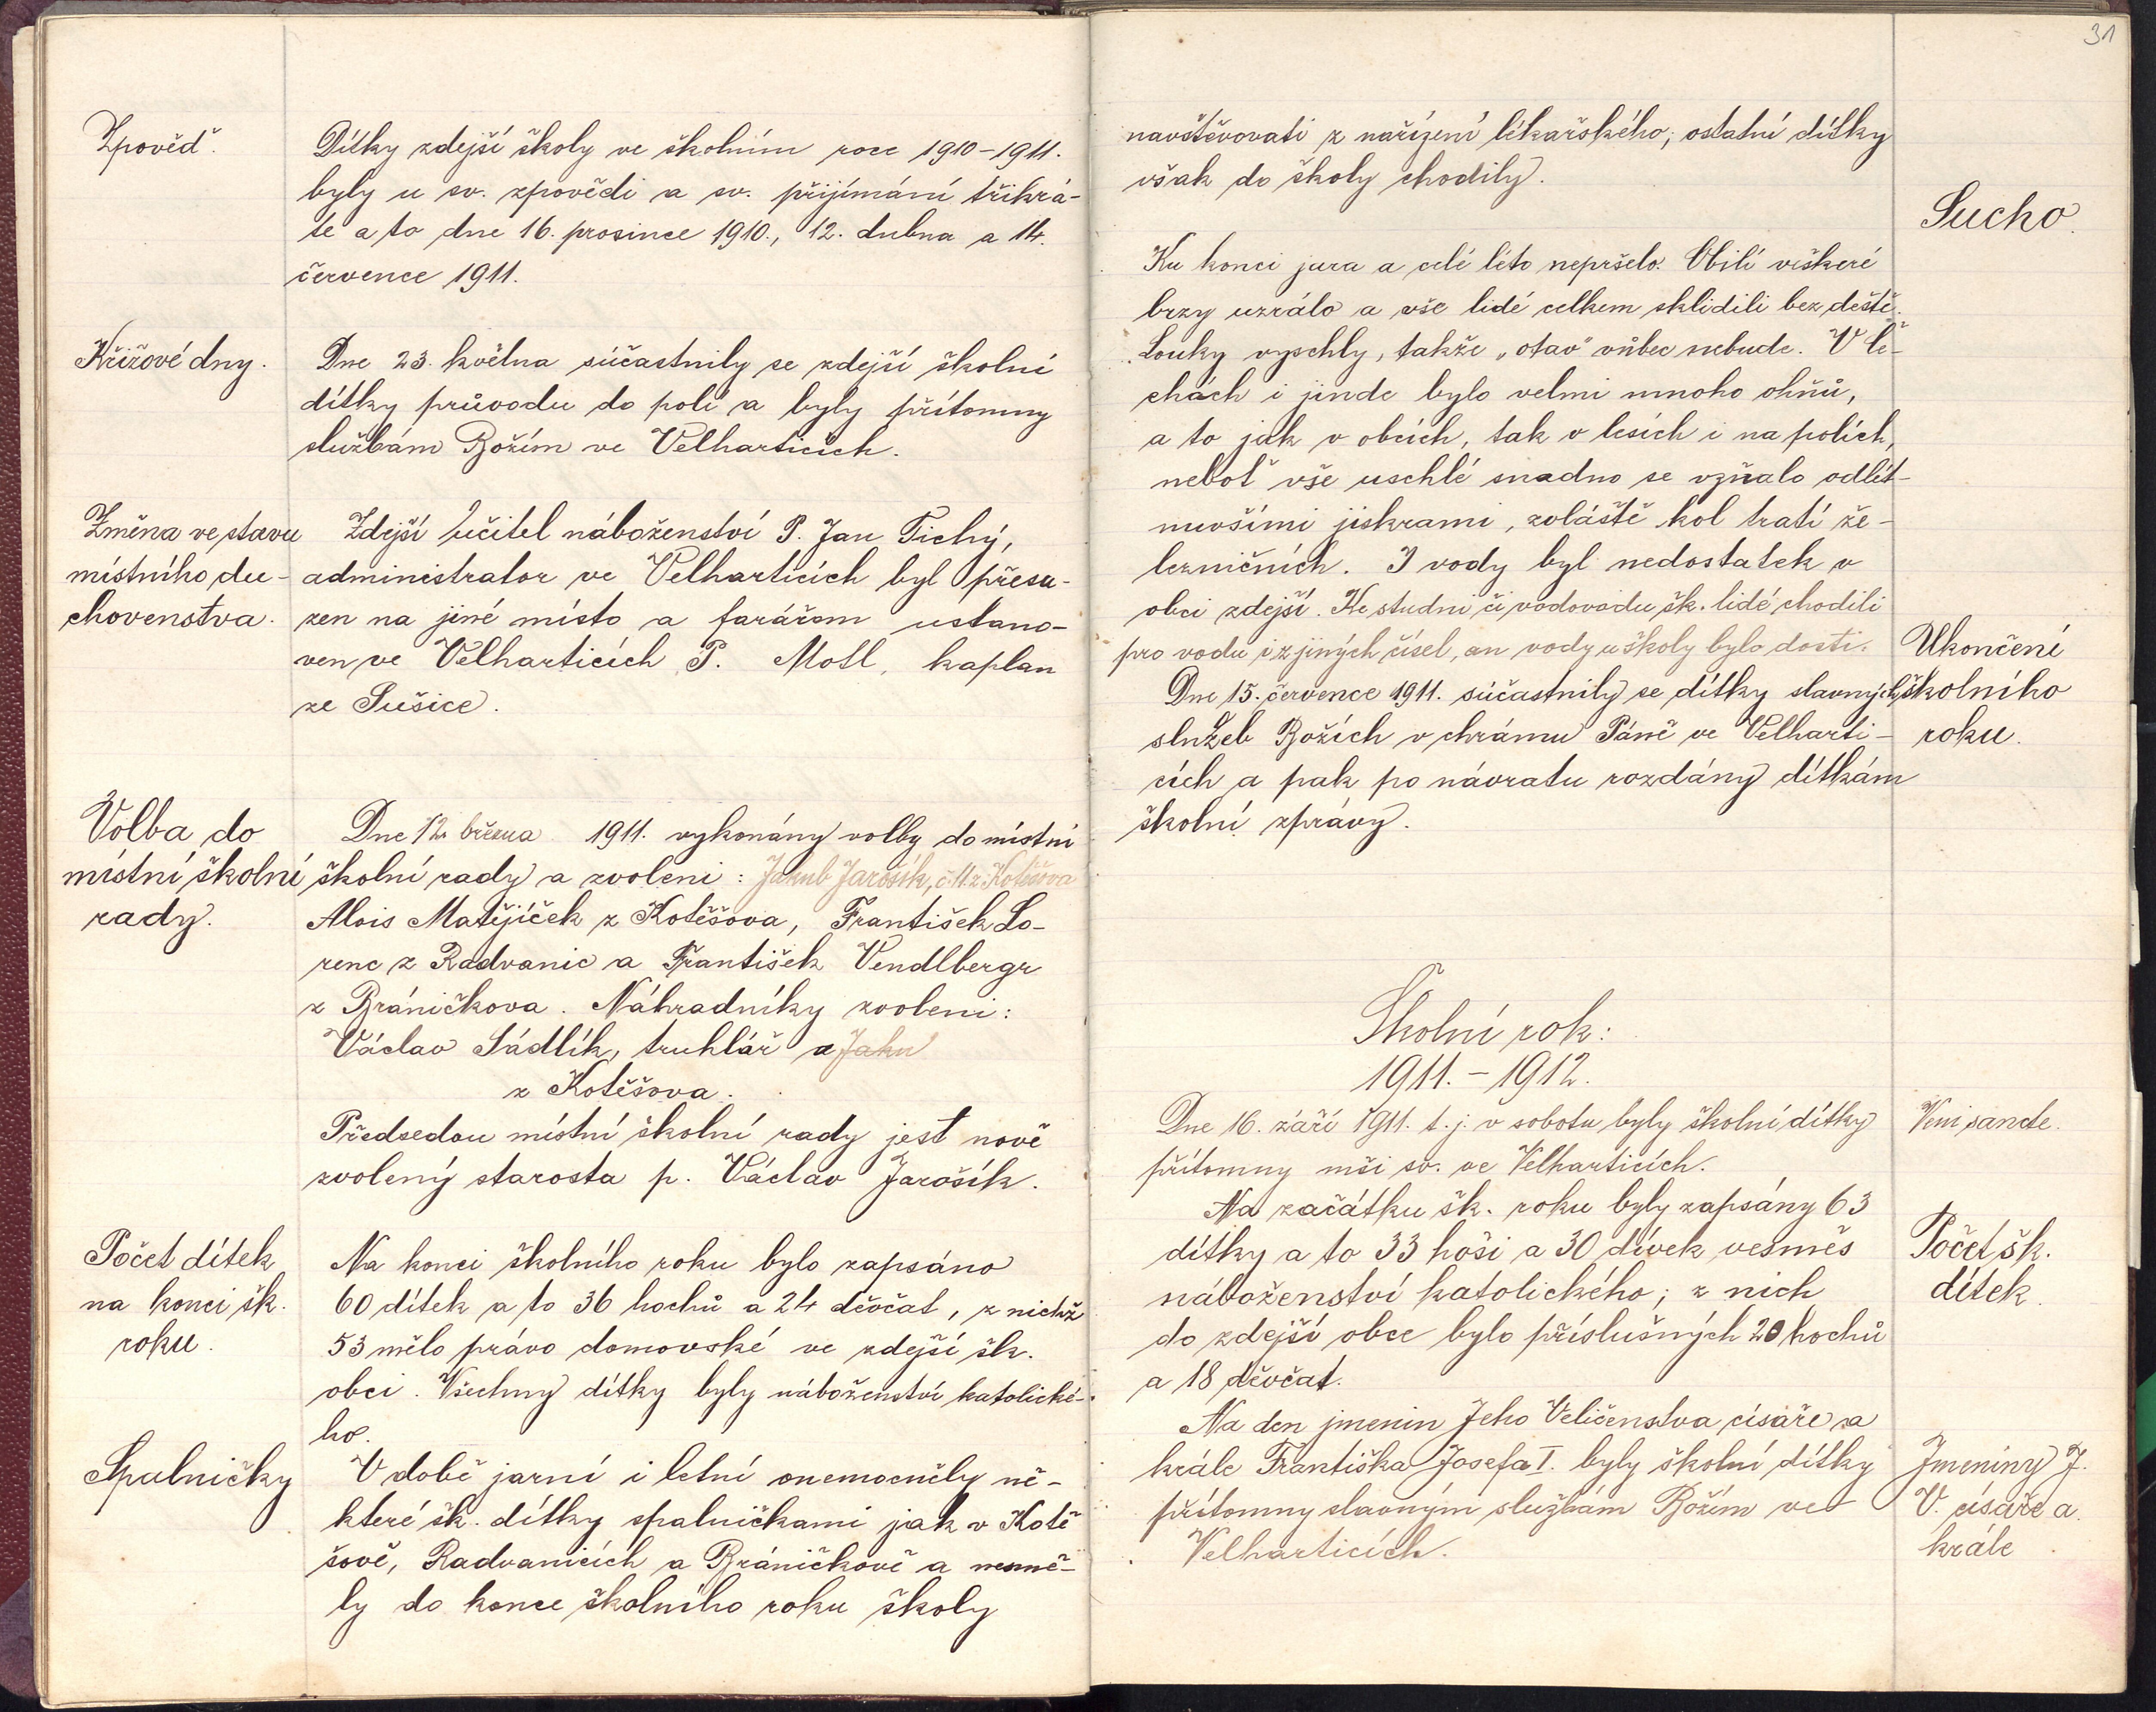 Zpověď.
Dítky zdejší školy ve školním roce 1910-1911.
byly u sv. zpovědi a sv. přijímání třikrá-
te a to dne 16. prosince 1910., 12. dubna a 14.
července 1911.
Křížové dny.
Dne 23. května súčastnily se zdejší školní
dítky průvodu do polí a byly přítomny
službám Božím ve Velharticích.
Změna ve stavu
místního du-
chovenstva.
Zdejší učitel náboženství P. Jan Tichý,
administrator ve Velharticích byl přesa-
zen na jiné místo a farářem ustano-
ven ve Velharticích P. Motl, kaplan
ze Sušice.
Volba do
místní školní
rady.
Dne 12. března 1911. vykonány volby do místní
školní rady a zvoleni: Jakub Jarošík, č. 11. z Kotěšova
Alois Matějíček z Kotěšova, František Lo-
renc z Radvanic a František Vendlbergr
z Bráničkova. Náhradníky zvoleni:
Václav Sádlík, truhlář a Jaku
z Kotěšova.
Předsedou místní školní rady jest nově
zvolený starosta p. Václav Jarošík.
Počet dítek
na konci šk.
roku.
Na konci školního roku bylo zapsáno
60 dítek a to 36 hochů a 24 děvčat, z nichž
53 mělo právo domovské ve zdejší šk.
obci. Všechny dítky byly náboženství katolické-
ho.
Spalničky
V době jarní i letní onemocněly ně-
které šk. dítky spalničkami jak v Kotě
šově, Radvanicích a Bráničkově a nesmě-
ly do konce školního roku školy
31
navštěvovati z nařízení lékařského; ostatní dítky
však do školy chodily.
Sucho.
Ku konci jara a celé léto nepršelo. Obilí veškeré
brzy uzrálo a vše lidé celkem sklidili bez deště.
Louky vyschly, takže „otav" vůbec nebude. V Če-
chách i jinde bylo velmi mnoho ohňů,
a to jak v obcích, tak v lesích i na polích,
neboť vše uschlé snadno se vzňalo odlét-
nuvšími jiskrami, zvláště kol tratí že-
lezničních. I vody byl nedostatek v
obci zdejší. Ke studni či vodovodu šk. lidé chodili
pro vodu i z jiných čísel, an vody u školy bylo dosti.
Ukončení
školního
roku.
Dne 15. července 1911. súčastnily se dítky slavných
služeb Božích v chrámu Páně ve Velharti-
cích a pak po návratu rozdány dítkám
školní zprávy.
Školní rok:
1911.-1912.
Dne 16. září 1911. t.j. v sobotu byly školní dítky
přítomny mši sv. ve Velharticích.
Veni sancte.
Na začátku šk. roku byly zapsány 63
dítky a to 33 hoši a 30 dívek vesměs
náboženství katolického; z nich
do zdejší obce bylo příslušných 20 hochů
a 18 děvčat.
Počet šk.
dítek.
Na den jmenin Jeho Veličenstva císaře a
krále Františka Josefa I. byly školní dítky
přítomny slavným službám Božím ve
Velharticích.
Jmeniny J.
V. císaře a
krále